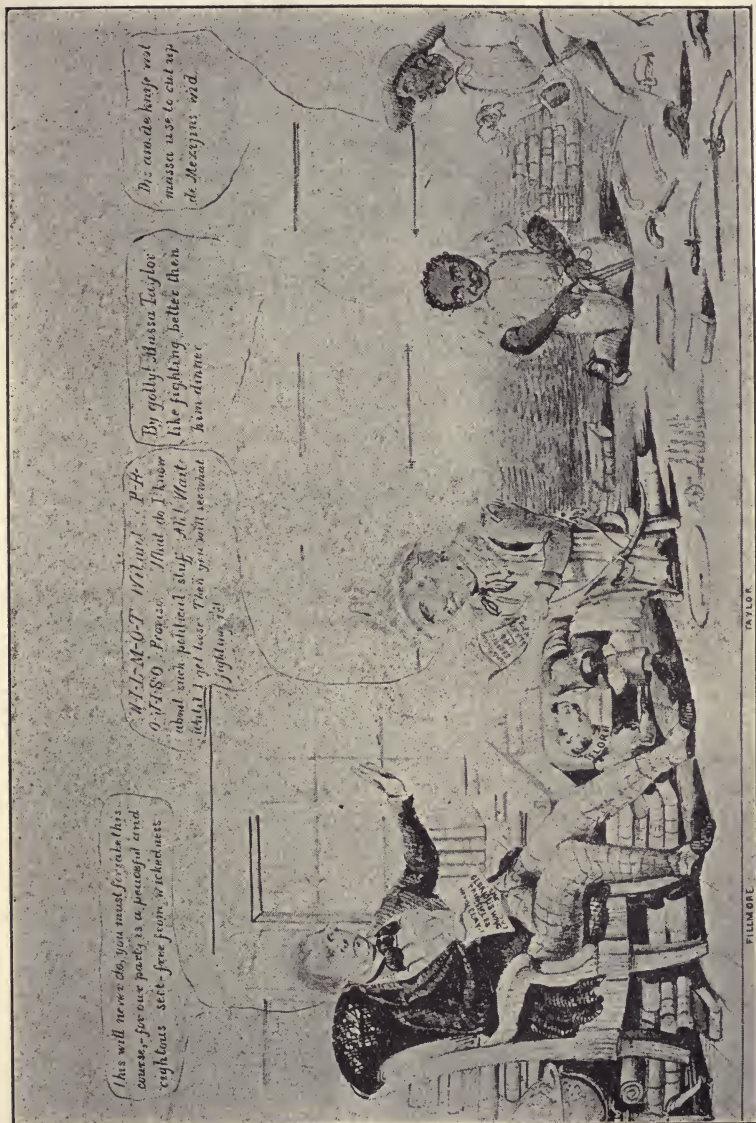 This will never do, you must forsake this
course,-for our party is a peaceful and
rightous sect-free from wickedness
W-I-L-M-O-T Wilmot P-R-
O-V-I-S-O Proviso. What do I know
about such political stuff. Ah! Wait
untill I get loose Then you will see what
fighting is!
By golly! Massa Taylor
like fighting better then
him dinner
Dis am de knife wot
massa use to cut up
de Mexijins wid.
FILLMORE
TAYLOR